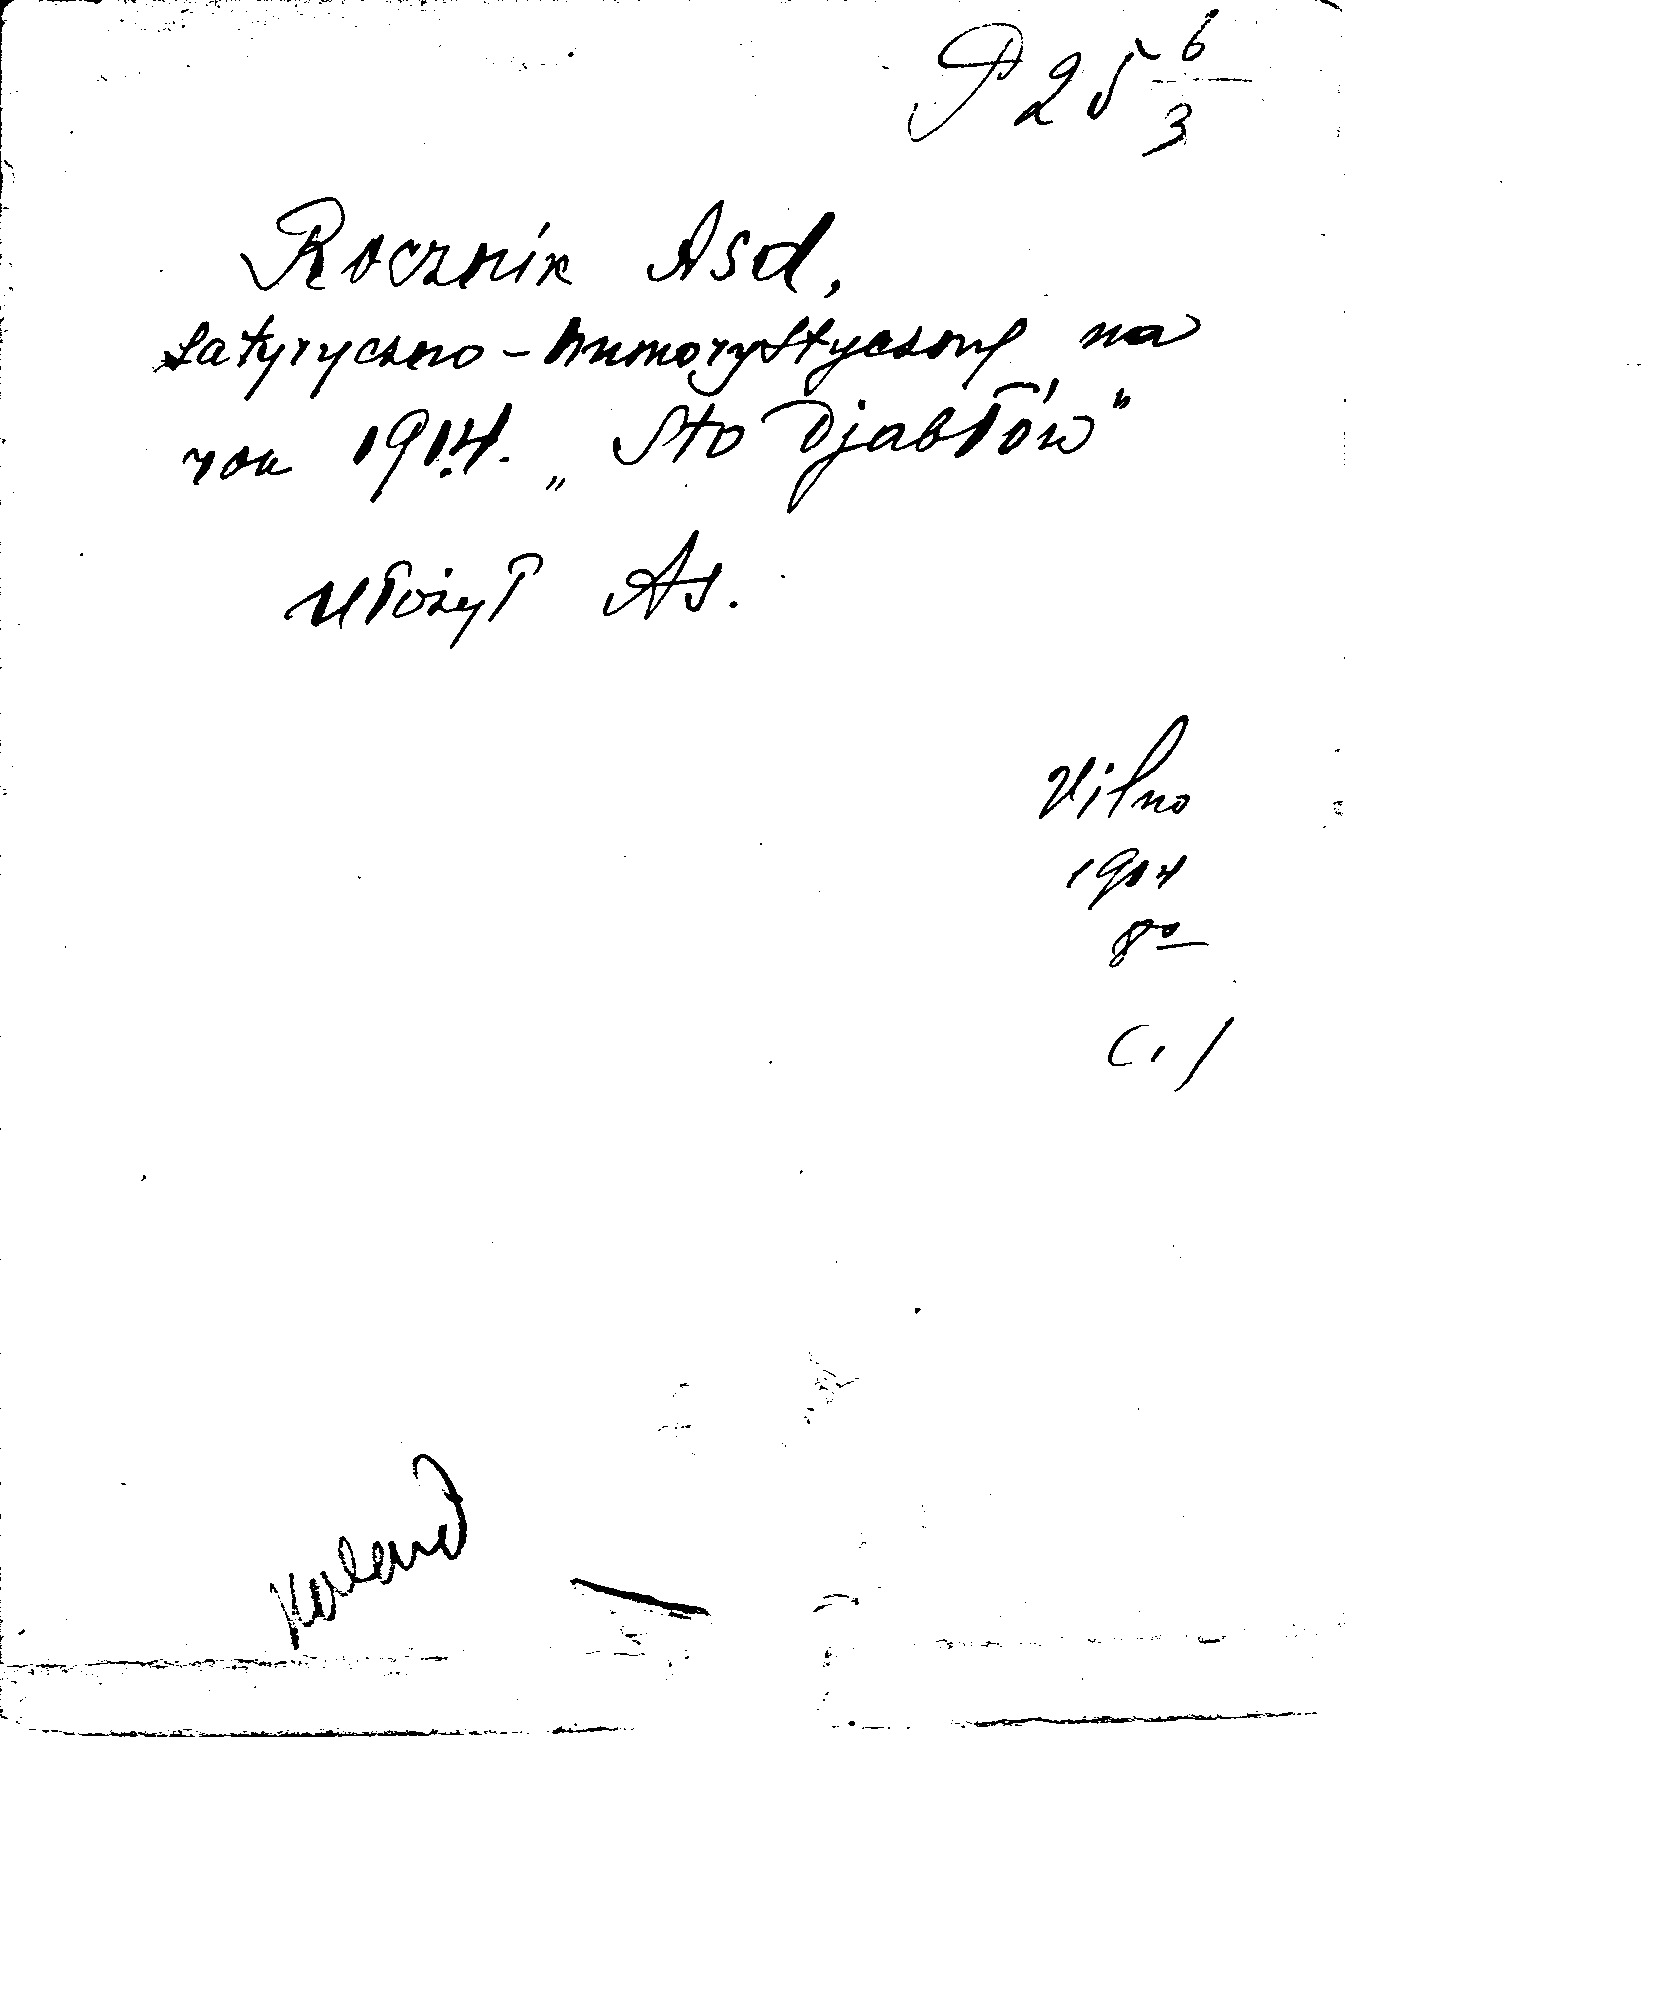 P 25 6/3
Rocznik Asa,
satyryczno-humorystyczny na
rok 1914. „Sto Djabłów"
Ułożył As.
Vilno
1914
8°
C. 1
Kalend